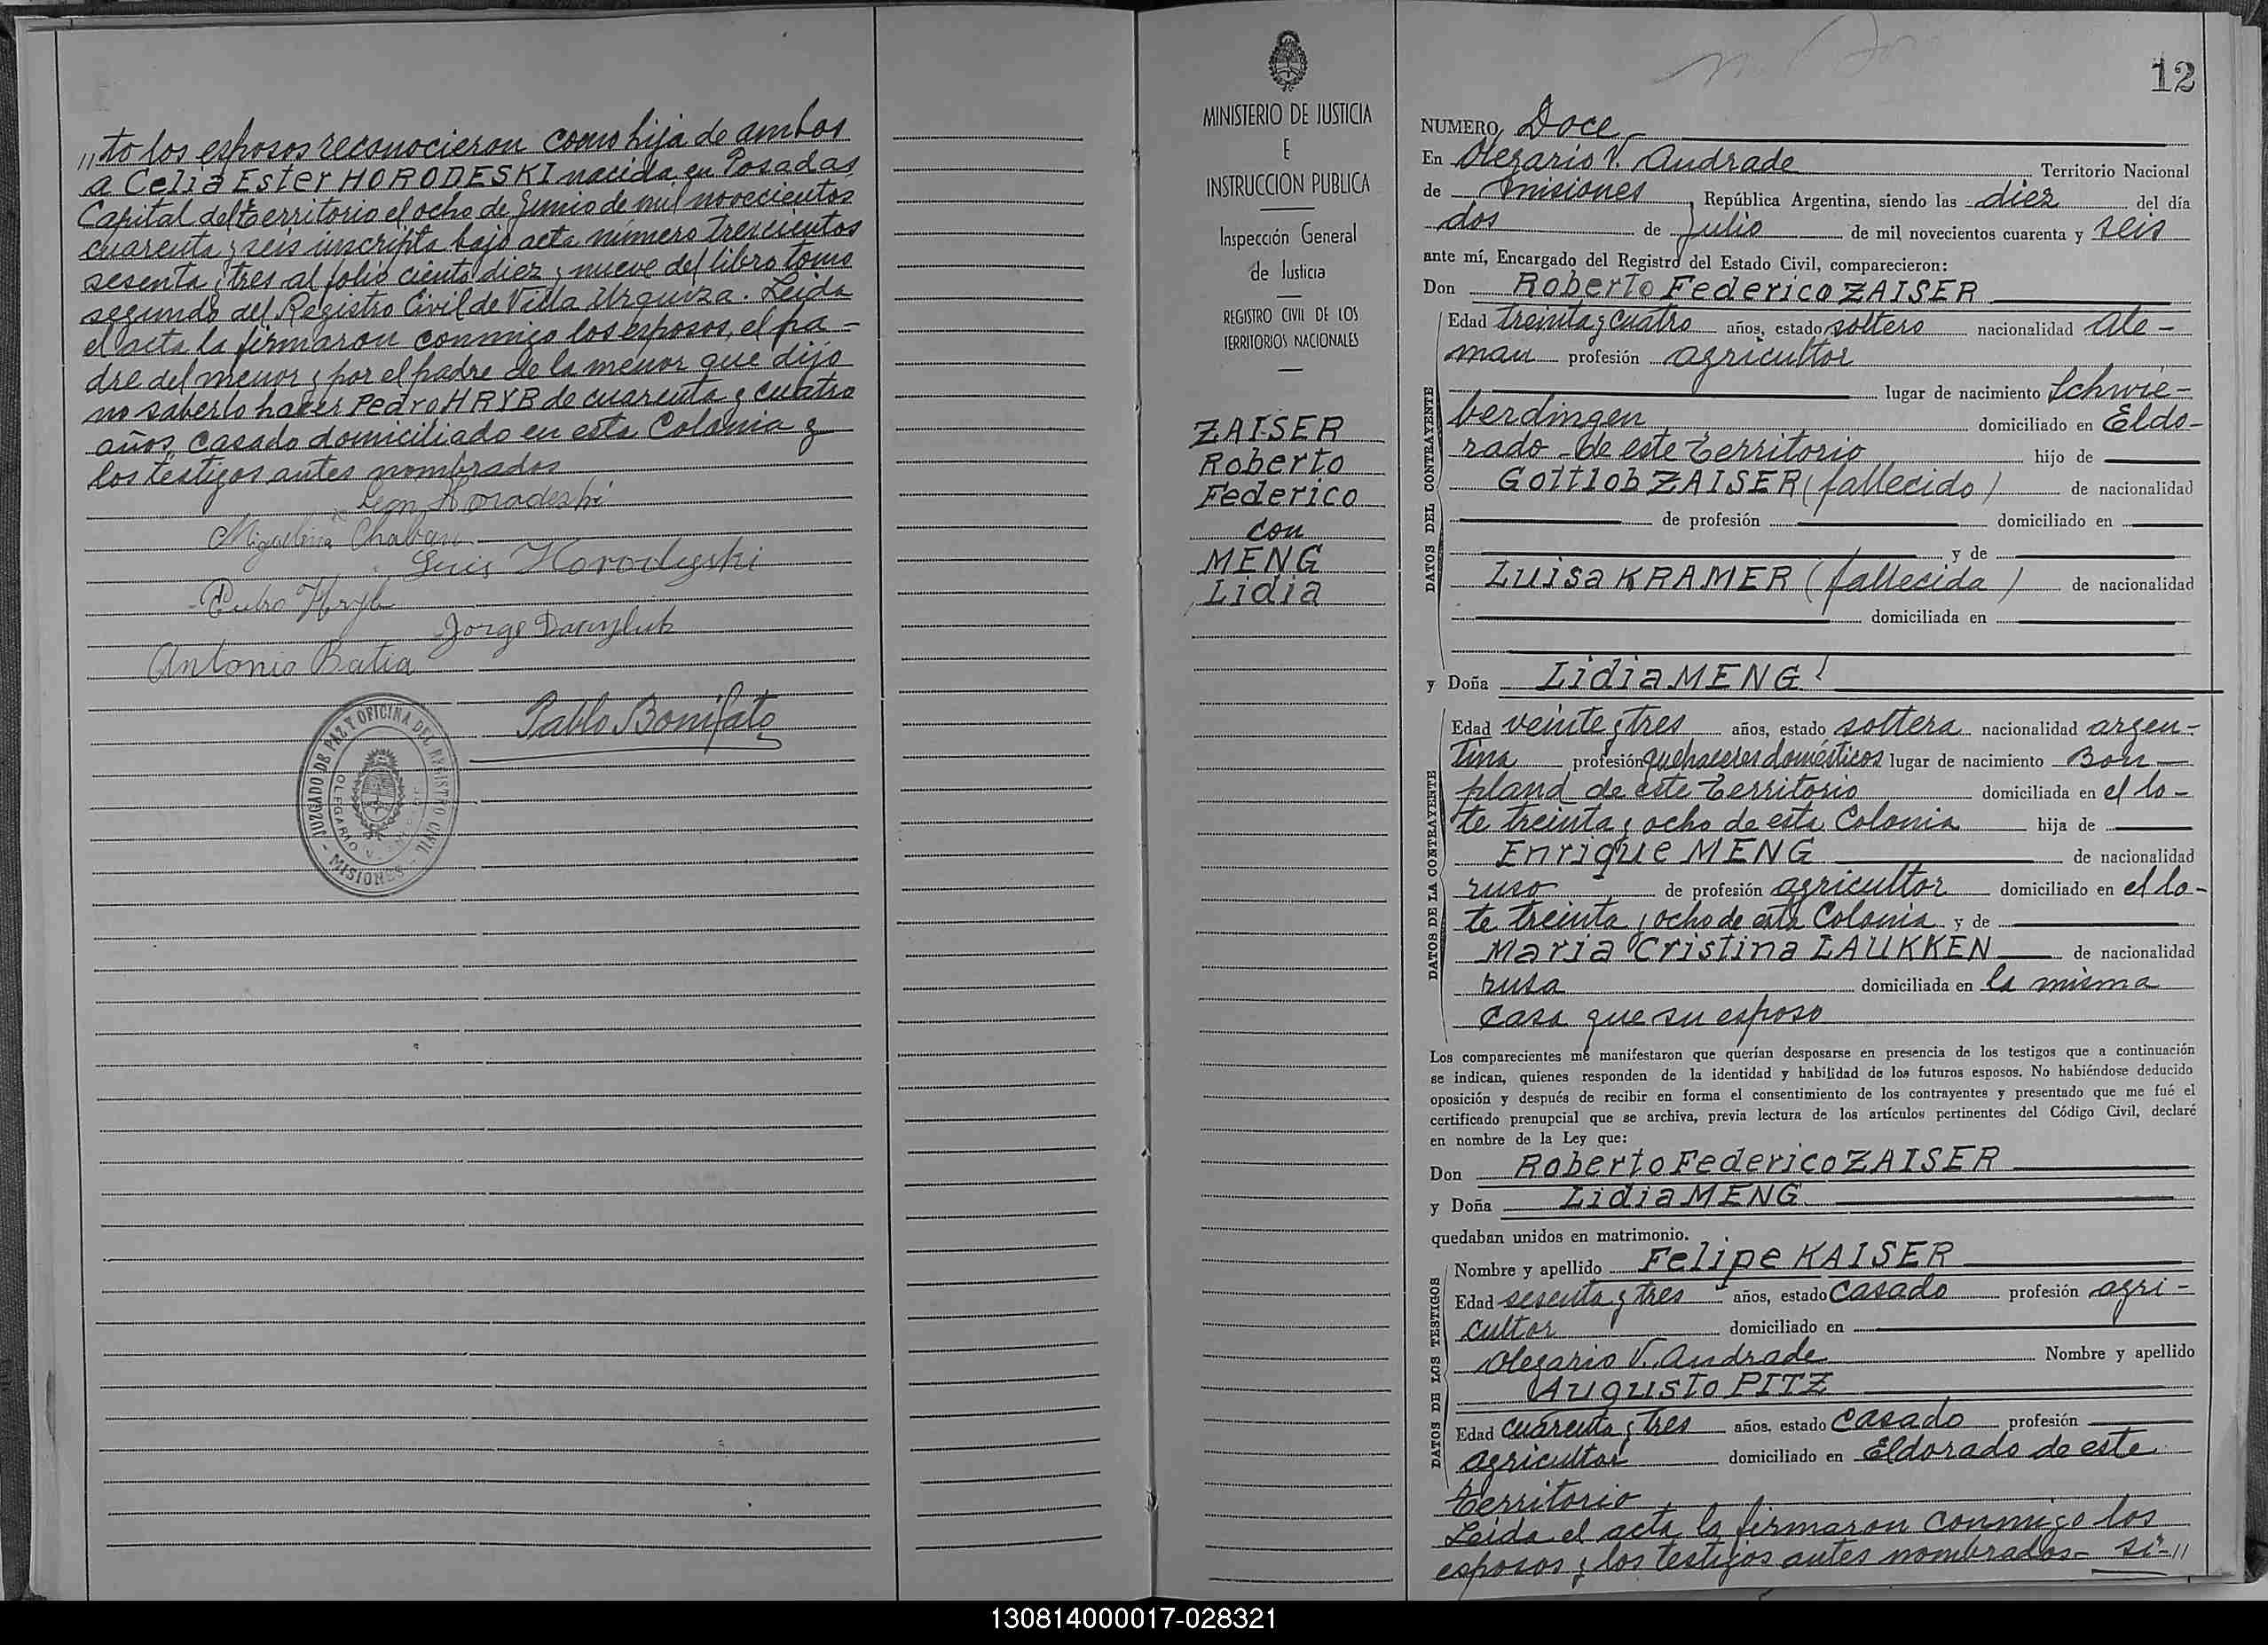 ,,to los esposos reconocieron como hija de ambos
a Celia Ester HORODESKI nacida en Posadas
Capital del territorio el ocho de Junio de mil novecientos
cuarenta y seis inscripta bajo acta número trescientos
sesenta y tres al folio ciento diez y nueve del libro tomo
segundo del Registro Civil de Villa Urquiza. Leida
el acta la firmaron conmigo los esposos, el pa-
dre del menor y por el padre de la menor que dijo
no saberlo hacer Pedro HRYB de cuarenta y cuatro
años, casado domiciliado en esta Colonia y
los testigos antes nombrados
Leon Horodeski
Miguelina Chaban
Luis Horodyski
Pedro Hryb
Jorge Danyluk
Antonio Batia
Pablo Bonifato
JUZGADO DE PAZ Y OFICINA DEL REGISTRO CIVIL
OLEGARIO V.
- MISIONES -
MINISTERIO DE JUSTICIA
E
INSTRUCCION PUBLICA
Inspección General
de Justicia
REGISTRO CIVIL DE LOS
TERRITORIOS NACIONALES
ZAISER
Roberto
Federico
con
MENG
Lidia
12
NUMERO Doce
En Olegario V. Andrade Territorio Nacional
de Misiones, República Argentina, siendo las diez del día
dos de Julio de mil novecientos cuarenta y seis
ante mí, Encargado del Registro del Estado Civil, comparecieron:
Don Roberto Federico ZAISER
DATOS DEL CONTRAYENTE
Edad treinta y cuatro años, estado soltero nacionalidad ale-
man profesión agricultor
lugar de nacimiento Schwie-
berdingen domiciliado en Eldo-
rado de este territorio hijo de
Gottlob ZAISER (fallecido) de nacionalidad
de profesión domiciliado en
y de
Luisa KRAMER (fallecida) de nacionalidad
domiciliada en
y Doña Lidia MENG
DATOS DE LA CONTRAYENTE
Edad veinte y tres años, estado soltera nacionalidad argen-
tina profesión quehaceres domésticos lugar de nacimiento Bon-
pland de este territorio domiciliada en el lo-
te treinta y ocho de esta Colonia hija de
Enrique MENG de nacionalidad
ruso de profesión agricultor domiciliado en el lo-
te treinta y ocho de esta Colonia y de
Maria Cristina LAUKKEN de nacionalidad
rusa domiciliada en la misma
casa que su esposo
Los comparecientes me manifestaron que querían desposarse en presencia de los testigos que a continuación
se indican, quienes responden de la identidad y habilidad de los futuros esposos. No habiéndose deducido
oposición y después de recibir en forma el consentimiento de los contrayentes y presentado que me fué el
certificado prenupcial que se archiva, previa lectura de los artículos pertinentes del Código Civil, declaré
en nombre de la Ley que:
Don Roberto Federico ZAISER
y Doña Lidia MENG
quedaban unidos en matrimonio.
DATOS DE LOS TESTIGOS
Nombre y apellido Felipe KAISER
Edad sesenta y tres años, estado casado profesión agri-
cultor domiciliado en
Olegario V. Andrade Nombre y apellido
Augusto PITZ
Edad cuarenta y tres años, estado casado profesión
agricultor domiciliado en Eldorado de este
territorio
Leida el acta la firmaron conmigo los
esposos y los testigos antes nombrados- si-,,
130814000017-028321